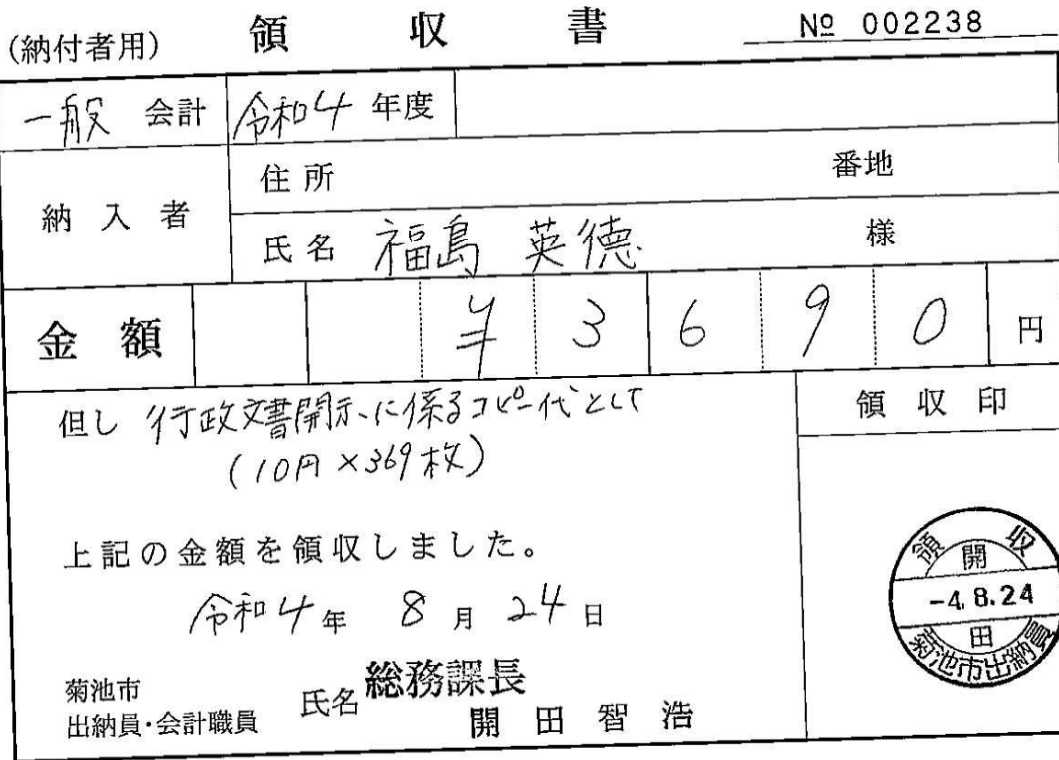 (納付者用) 領収書 № 002238
一般 会計 令和4 年度
納入者 住所 番地
氏名 福島 英徳 様
金額 ¥3690 円
但し 行政文書開示に係るコピー代として
(10円×369枚)
領収印
上記の金額を領収しました。
令和4年 8月 24日
菊池市
出納員・会計職員 氏名 総務課長
開田智浩
領収
開
-4.8.24
田
菊池市出納員